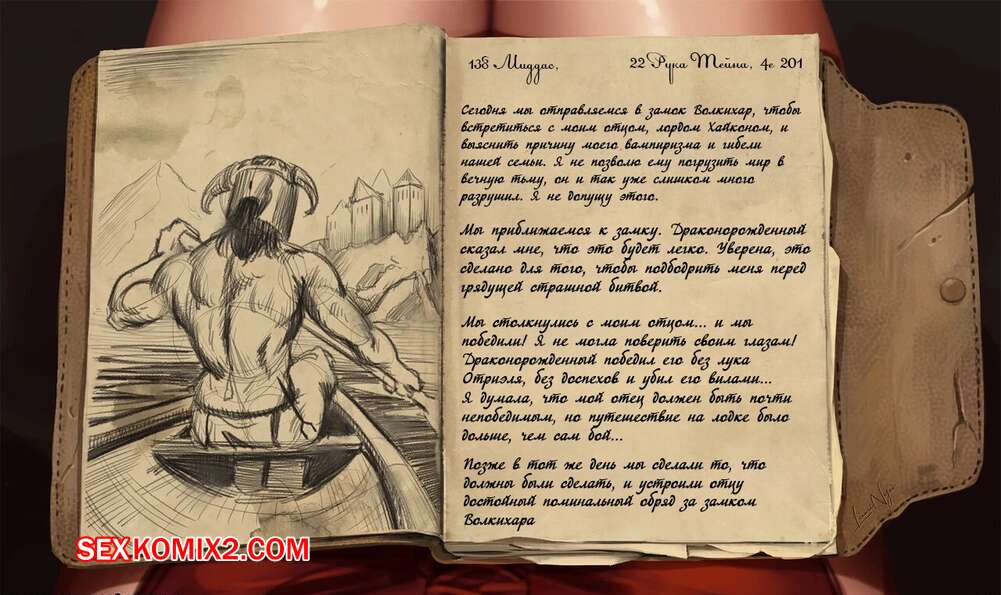 138 Миддас,
22 Рука Тейна, 4е 201
Сегодня мы отправляемся в замок Волкихар, чтобы
встретиться с моим отцом, лордом Хайконом, и
выяснить причину моего вампиризма и гибели
нашей семьи. Я не позволю ему погрузить мир в
вечную тьму, он и так уже слишком много
разрушил. Я не допущу этого.
Мы приближаемся к замку. Драконорожденный
сказал мне, что это будет легко. Уверена, это
сделано для того, чтобы подбодрить меня перед
грядущей страшной битвой.
Мы столкнулись с моим отцом... и мы
победили! Я не могла поверить своим глазам!
Драконорожденный победил его без лука
Отриэля, без доспехов и убил его вилами...
Я думала, что мой отец должен быть почти
непобедимым, но путешествие на лодке было
дольше, чем сам бой...
Позже в тот же день мы сделали то, что
должны были сделать, и устроили отцу
достойный поминальный обряд за замком
Волкихара
SEXKOMIX2.COM